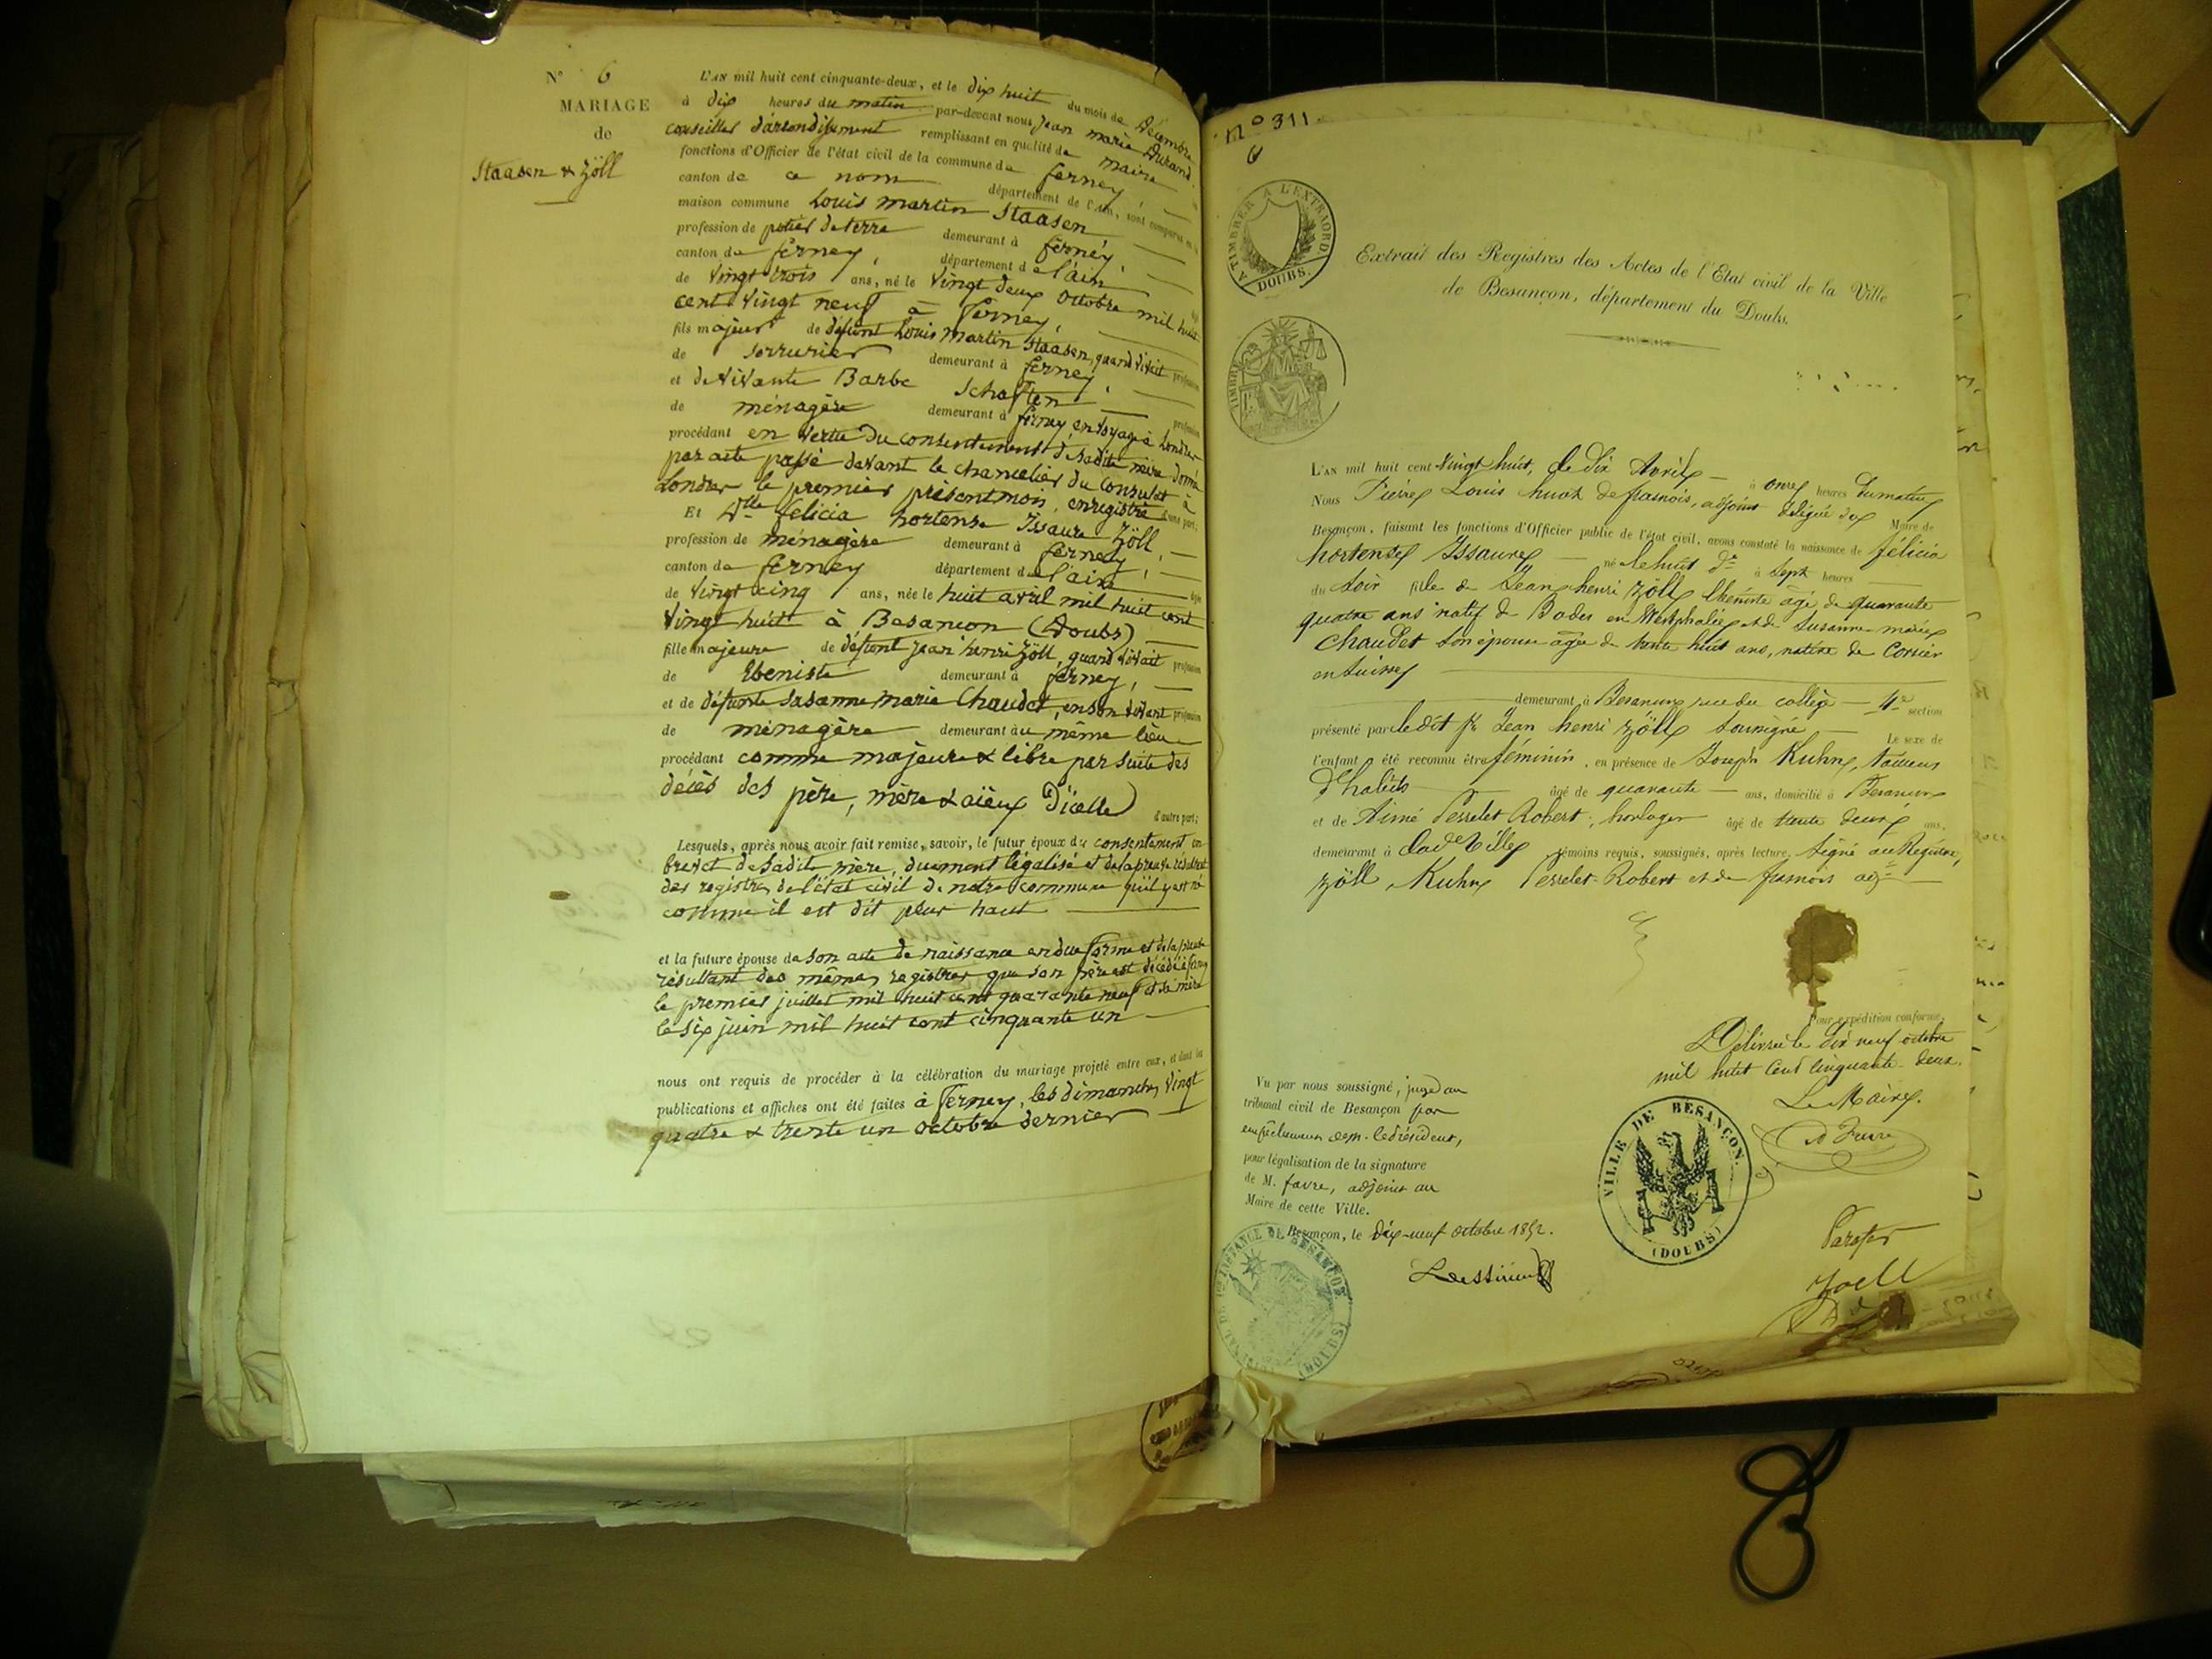 N° 6
MARIAGE
de
Staasen & Zöll
L'AN mil huit cent cinquante-deux, et le dix huit du mois de Décembre
à dix heures du matin par-devant nous Jean marie Durand
conseiller d'arrondissement remplissant en qualité de maire
fonctions d'Officier de l'état civil de la commune de ferney,
canton de ce nom département de l'Ain, sont comparus en la
maison commune Louis martin Staasen
profession de potier de terre demeurant à ferney,
canton de ferney, département de l'ain
de vingt trois ans, né le vingt deux octobre mil huit
cent vingt neuf à ferney,
fils majeur de défunt Louis martin Staasen, quand vivait profession
de serrurier demeurant à ferney,
et de vivante Barbe Schaften profession
de ménagère demeurant à ferney en voyage à Londres
procédant en vertu du consentement de sadite mère donné
par acte passé devant le chancelier du consulat à
Londres le premier présent mois, enregistré d'une part;
Et Dlle félicia hortense Issaure Zöll,
profession de ménagère demeurant à ferney,
canton de ferney département de l'ain
de vingt cinq ans, née le huit avril mil huit cent
vingt huit à Besancon (Doubs)
fille majeure de défunt jean henri Zöll, quand vivait profession
de Ebeniste demeurant à ferney,
et de défunte Susanne marie Chaudet, en son vivant profession
de ménagère demeurant au même lieu
procédant comme majeure & libre par suite des
décès des père, mère & aïeux d'icelle
d'autre part;
Lesquels, après nous avoir fait remise, savoir, le futur époux du consentement en
brevet de sadite mère, duement légalisé et de la preuve résultant
des registres de l'état civil de notre commune qu'il y est né
comme il est dit plus haut
et la future épouse de son acte de naissance en due forme et de la preuve
résultant des mêmes registres que son père est décédé à ferney
le premier juillet mil huit cent quarante neuf et sa mère
le six juin mil huit cent cinquante un
nous ont requis de procéder à la célébration du mariage projeté entre eux, et dont les
publications et affiches ont été faites à ferney, les dimanches vingt
quatre & trente un octobre dernier
N° 311.
6
A TIMBRER A L'EXTRAORD.
DOUBS.
TIMBRE
Extrait des Registres des Actes de l'Etat civil de la Ville
de Besançon, département du Doubs.
L'AN mil huit cent vingt huit, le dix Avril à onze heures du matin
Nous Pierre Louis huot de frasnois, adjoint délégué du Maire de
Besançon, faisant les fonctions d'Officier public de l'état civil, avons constaté la naissance de félicia
hortense Issaure né le huit dt à sept heures
du soir fille de Jean henri Zöll ébéniste agé de quarante
quatre ans natif de Boder en Westphalie et de Susanne marie
Chaudet son épouse agée de trente huit ans, native de Corsier
en Suisse
demeurant à Besançon rue du collège 4e section
présenté par le dit Sr Jean henri Zöll soussigné Le sexe de
l'enfant a été reconnu être féminin, en présence de Joseph Kuhn, tailleur
d'habits âgé de quarante ans, domicilié à Besançon
et de Aimé Perrelet Robert, horloger âgé de trente deux ans,
demeurant à lad. Ville témoins requis, soussignés, après lecture. Signé au Registre,
Zöll, Kuhn Perrelet-Robert et de frasnois adjt
Pour expédition conforme,
Délivré le dix neuf octobre
mil huit cent cinquante deux.
Le Maire.
Vu par nous soussigné, juge au
tribunal civil de Besançon par
empêchement de M. le Président,
pour légalisation de la signature
de M. favre, adjoint au
Maire de cette Ville.
Besançon, le dix-neuf octobre 1852.
VILLE DE BESANÇON.
(DOUBS)
TRIBUNAL DE 1ère INSTANCE DE BESANÇON
(DOUBS)
Zoell